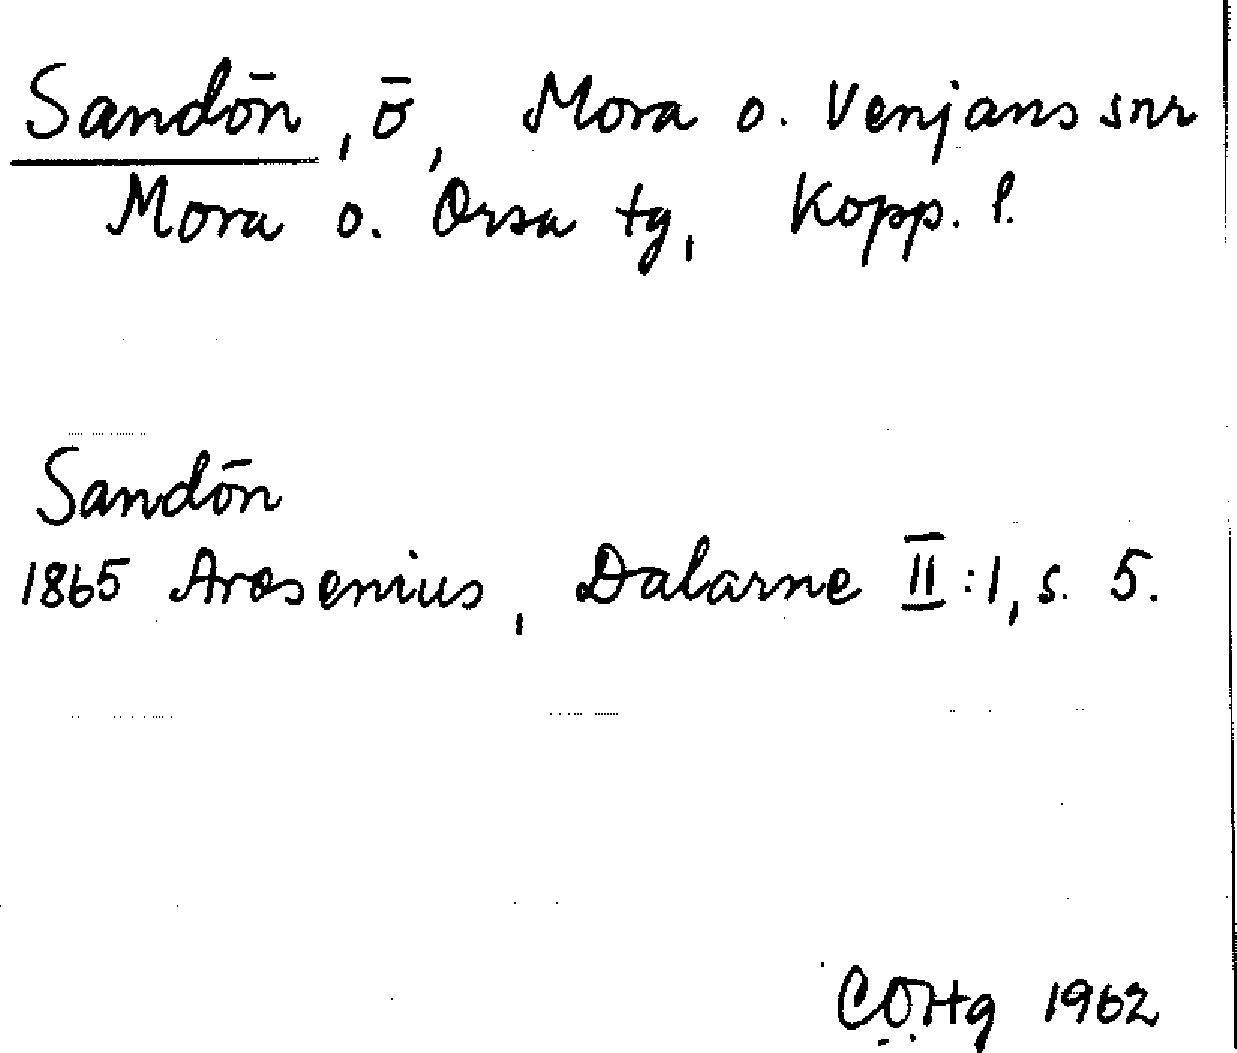 Sandön, ö, Mora o. Venjans snr
Mora o. Orsa tg, Kopp. l.
Sandön
1865 Arosenius, Dalarne II:1, s. 5.
COHg 1962